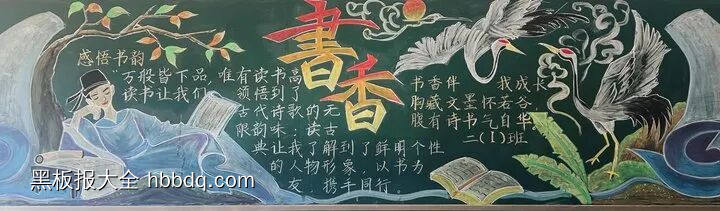 書香
感悟书韵
"万般皆下品，唯有读书高"
读书让我们领悟到了
古代诗歌的无
限韵味；读古
典让我了解到了鲜明个性
的人物形象，以书为
友，携手同行。
书香伴我成长
胸藏文墨怀若谷，
腹有诗书气自华。
二(1)班
黑板报大全 hbbdq.com